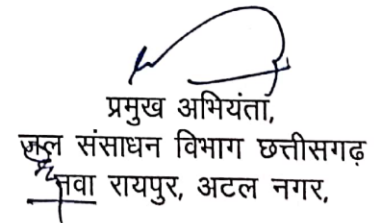 प्रमुख अभियंता,
जल संसाधन विभाग छत्तीसगढ़
नवा रायपुर, अटल नगर,